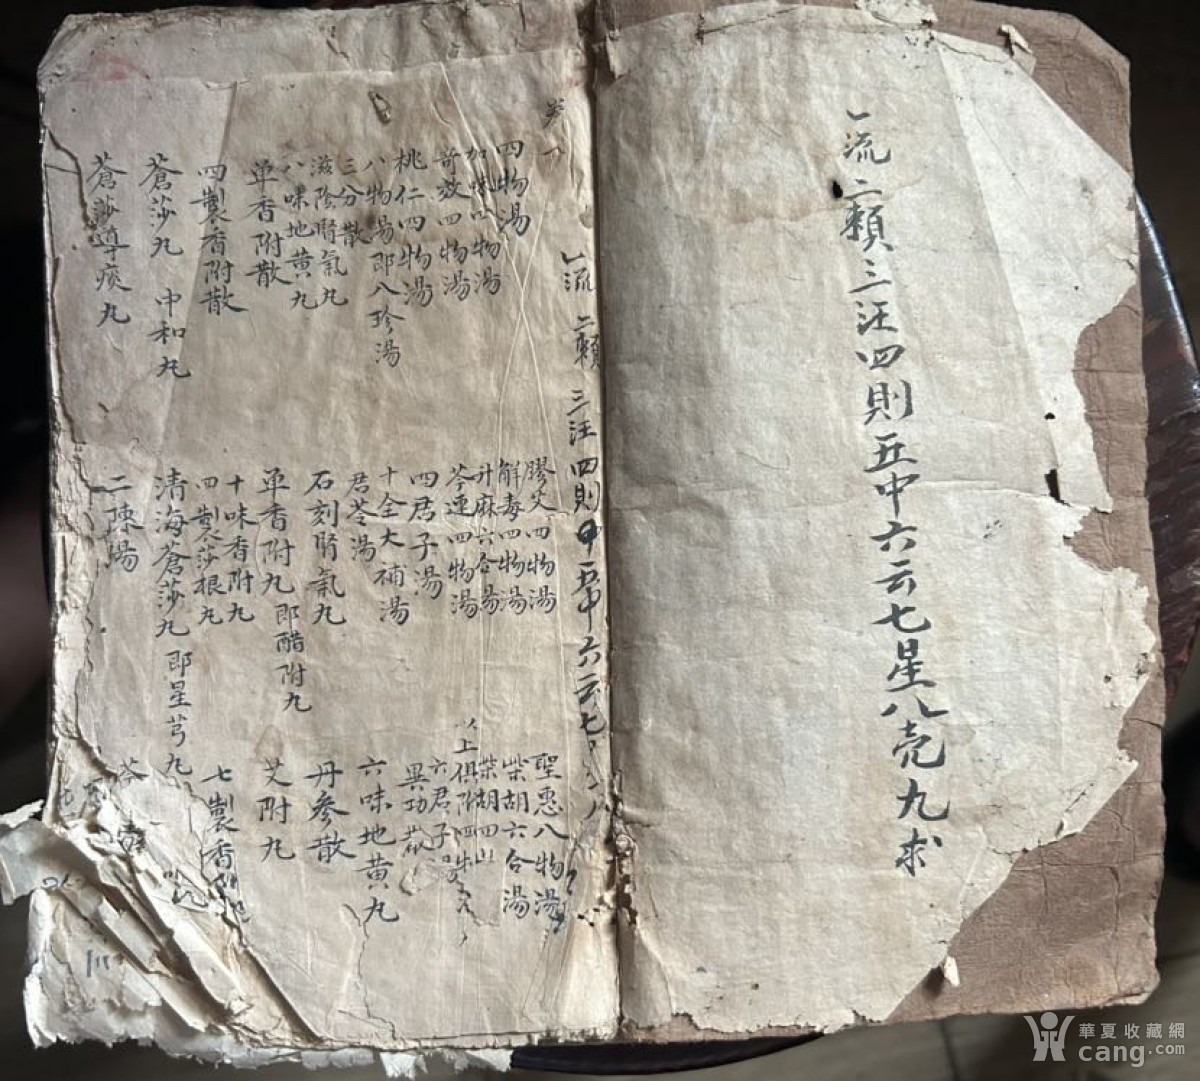 流二賴三汪四則五中六云七星八壳九求
流 二賴 三汪四則中五中六云七
四物湯
膠艾四物湯
聖惠八物湯
加味四物湯
解毒四物湯
柴胡六合湯
奇效四物湯
升麻六合湯
柴胡四
桃仁四物湯
芩連四物湯
以上俱附四物
八物湯即八珍湯
四君子湯
六君子湯
三分散
十全大補湯
異功散
滋陰腎氣丸
君苓湯
六味地黃丸
八味地黃丸
石刻腎氣丸
丹參散
單香附散
單香附丸即醋附丸
艾附丸
四製香附散
十味香附丸
七製香附丸
蒼莎丸 中和丸
四製莎根丸
蒼莎導痰丸
清海蒼莎丸即星芎丸
二陳湯
華夏收藏網
cang.com